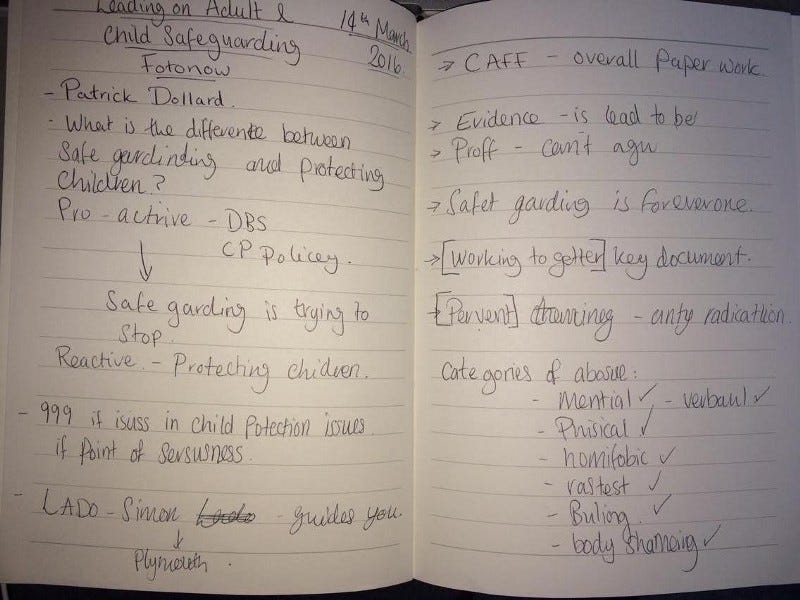 Leading on Adult &
Child Safeguarding
14th March
2016
Fotonow
- Patrick Dollard.
- What is the differente between
Safe gardinting and protecting
Children?
Pro - actrive - DBS
CP Policey.
↓
Safe garding is trying to
Stop.
Reactive. - Protecting chidren.
- 999 if isuss in child Potection issues
if Point of Sersusness.
- LADO - Simon - guides you.
↓
Plymouth.
→ CAFF - overall Paper work.
→ Evidence - is lead to be
→ Proff - can't agu
→ Safet garding is foreverone.
→ [Working to getter] key document.
→ [Pervent] - anty radicattion.
Categories of abosue:
- Mential ✓ - verbaul ✓
- Phisical ✓
- homifobic ✓
- rastest ✓
- Buling ✓
- body Shameing ✓